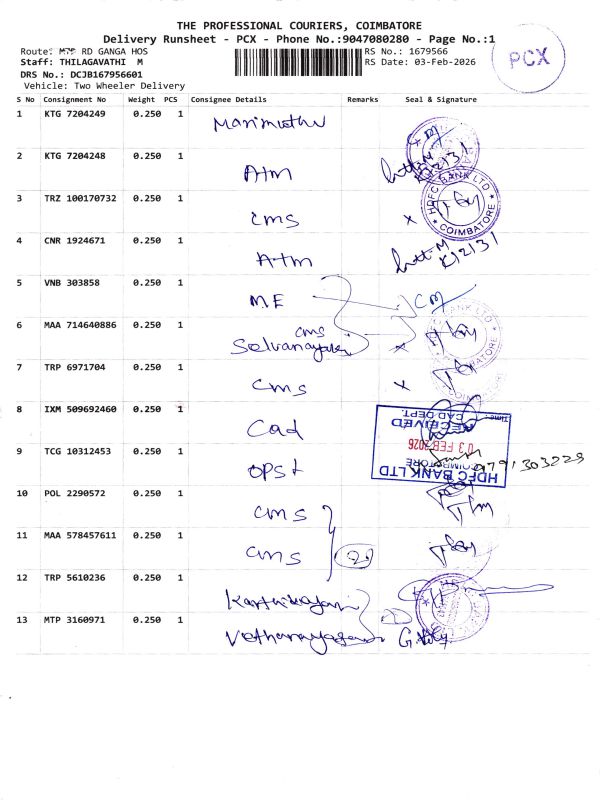 THE PROFESSIONAL COURIERS, COIMBATORE
Delivery Runsheet - PCX - Phone No.:9047080280 - Page No.:1
Route: MTP RD GANGA HOS
RS No.: 1679566
PCX
Staff: THILAGAVATHI M
RS Date: 03-Feb-2026
DRS No.: DCJB167956601
Vehicle: Two Wheeler Delivery
S No Consignment No Weight PCS Consignee Details Remarks Seal & Signature
1 KTG 7204249 0.250 1 Marimuthu
2 KTG 7204248 0.250 1 Atm
K12131
3 TRZ 100170732 0.250 1 cms x
HDFC BANK LTD
COIMBATORE
4 CNR 1924671 0.250 1 Atm
K12131
5 VNB 303858 0.250 1 M.E CM
6 MAA 714640886 0.250 1 cms
Selvanayaki x
7 TRP 6971704 0.250 1 cms x
8 IXM 509692460 0.250 1 Cad
Time:
CAD DEPT.
RECEIVED
03 FEB 2026
COIMBATORE
HDFC BANK LTD
9 TCG 10312453 0.250 1 OPSt 9791303229
10 POL 2290572 0.250 1 cms
11 MAA 578457611 0.250 1 cms
12 TRP 5610236 0.250 1
13 MTP 3160971 0.250 1